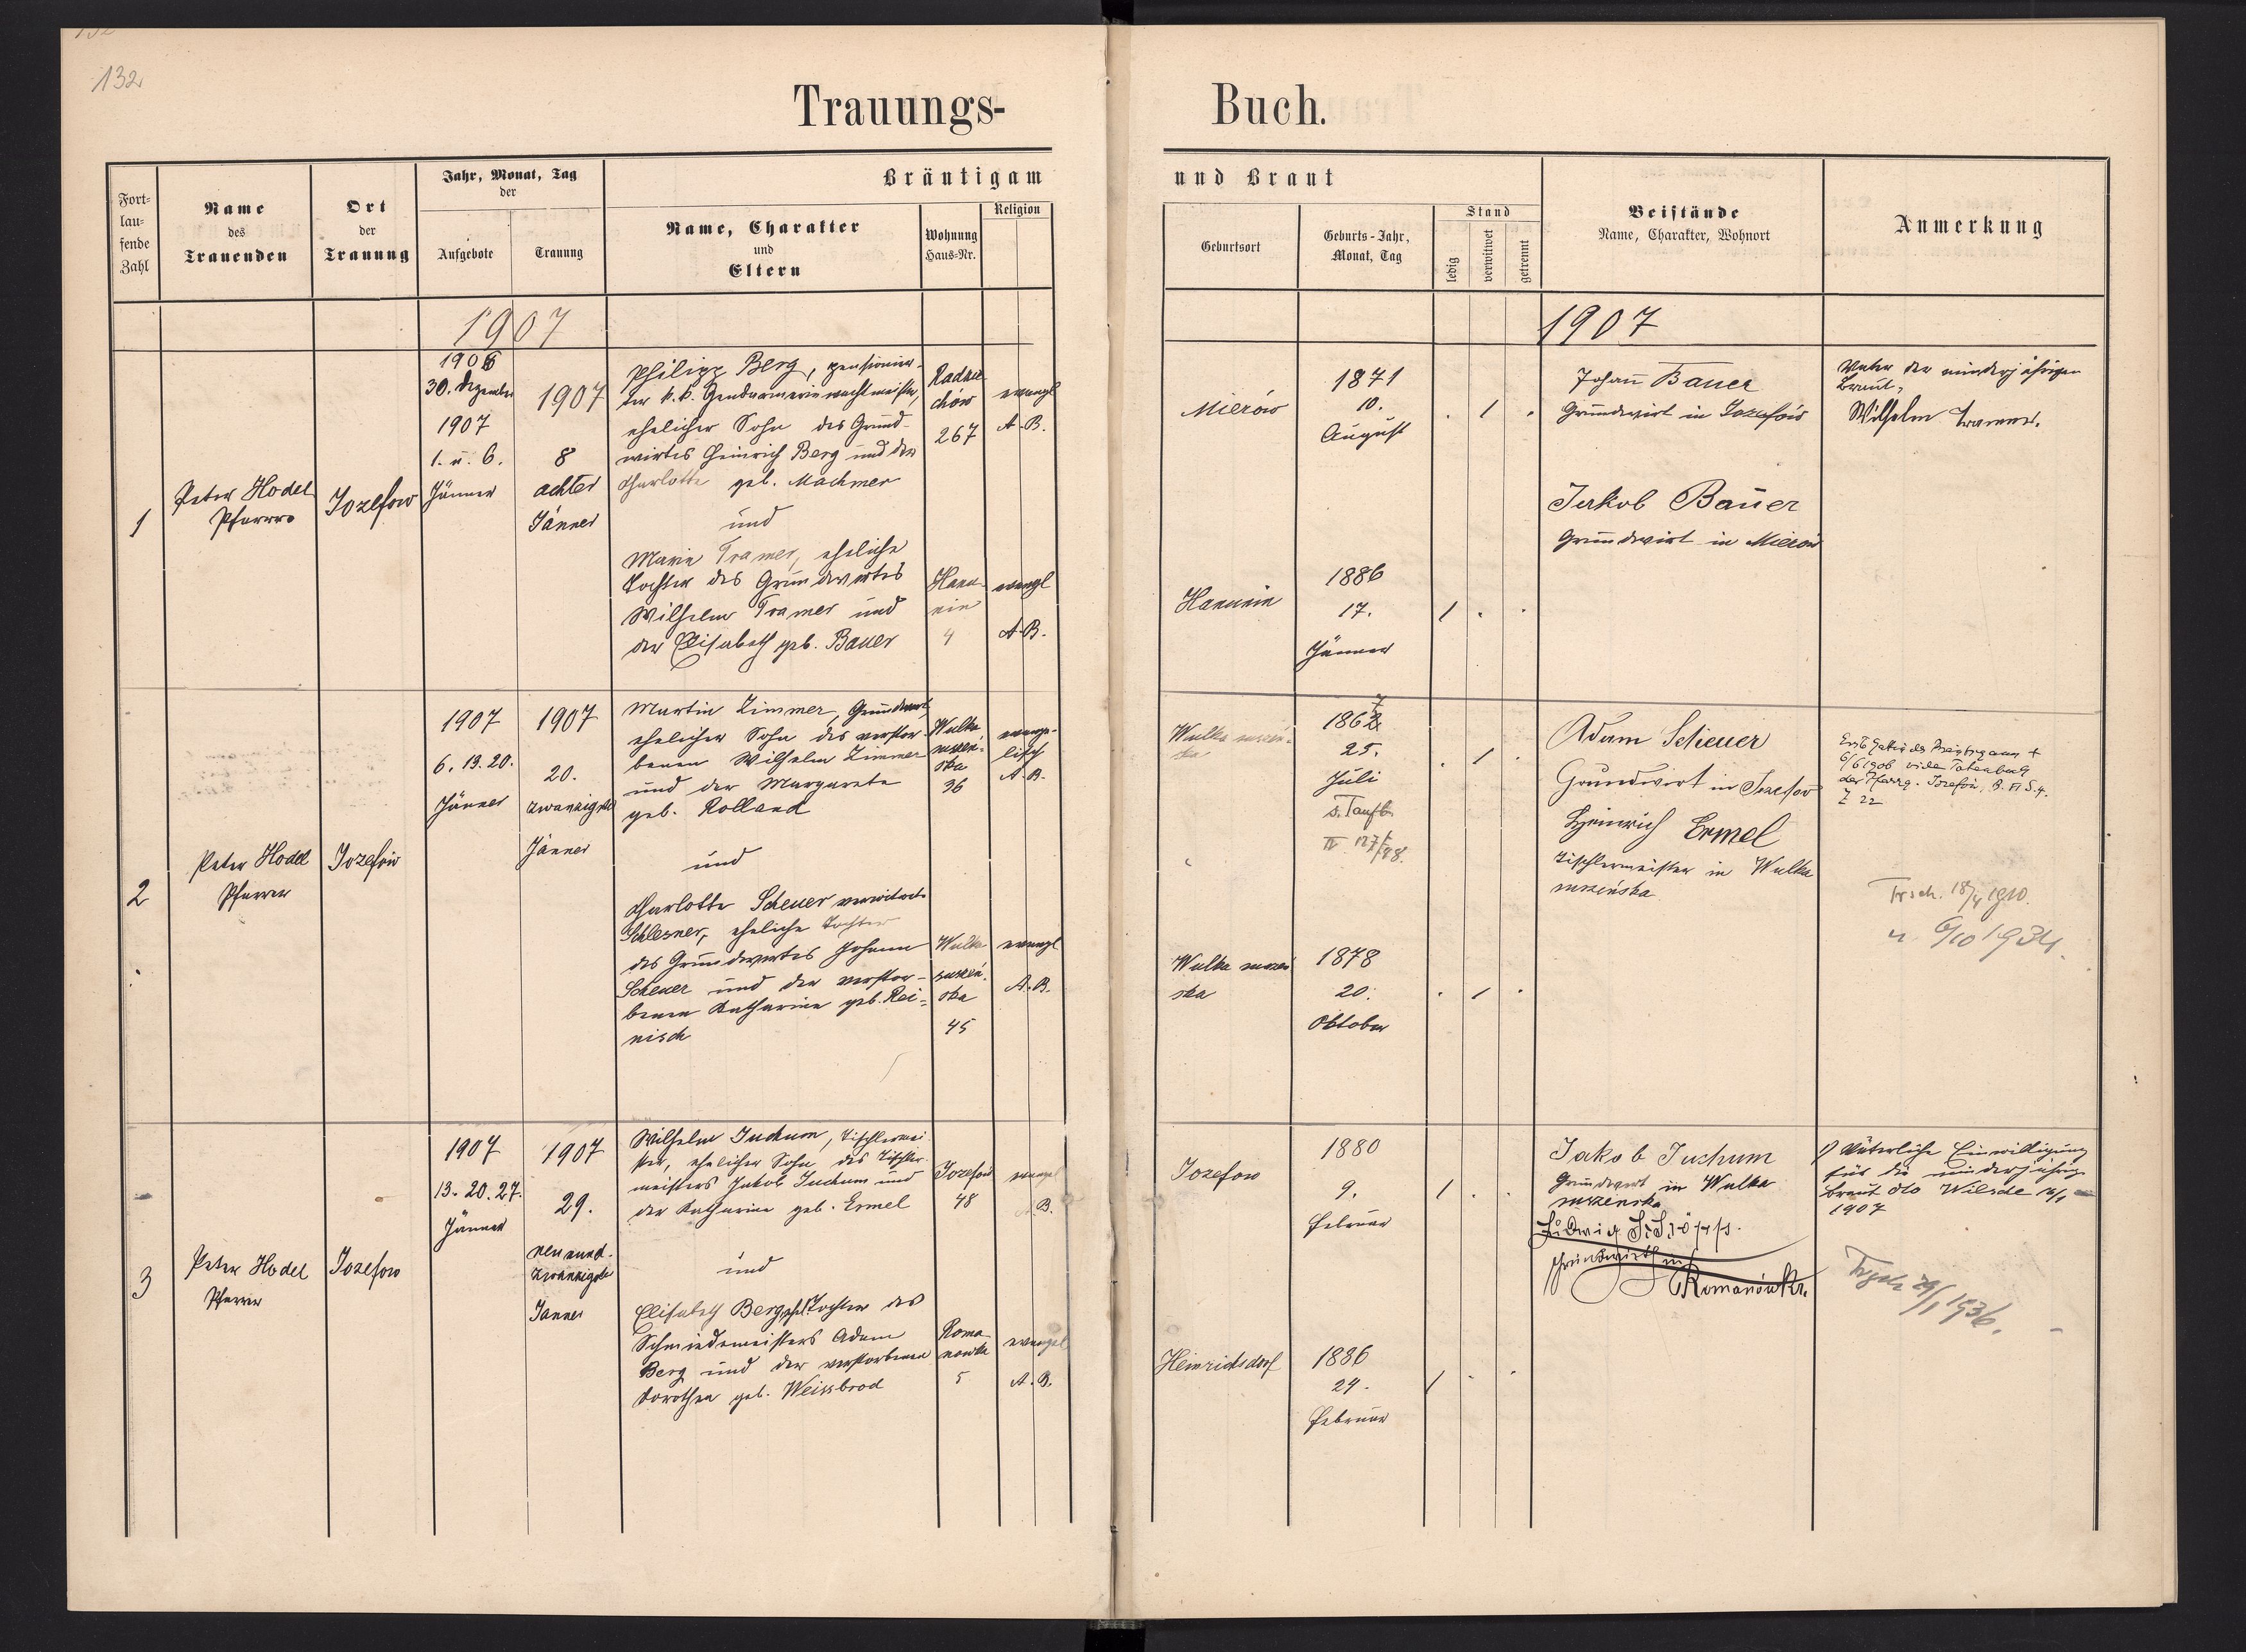 132
Trauungs-
Buch.
Fort-
lau-
fende
Zahl
Name
des
Trauenden
Ort
der
Trauung
Jahr, Monat, Tag
der
Aufgebote
Trauung
Bräutigam
Name, Charakter
und
Eltern
Wohnung
Haus-Nr.
Religion
und Braut
Geburtsort
Geburts-Jahr,
Monat, Tag
Stand
ledig
verwitwet
getrennt
Beistände
Name, Charakter, Wohnort
Anmerkung
1907
1907
1
Peter Hodel
Pfarrer
Jozefow
1906
30. Dezember
1907
1. u. 6.
Jänner
1907
8
achter
Jänner
Philipp Berg, pensionier-
ter k. k. Gendarmeriewachtmeister,
ehelicher Sohn des Grund-
wirtes Heinrich Berg und der
Charlotte geb. Machmer
und
Maria Tramer, eheliche
Tochter des Grundwirtes
Wilhelm Tramer und
der Elisabeth geb. Bauer
Radzie-
chów
267
evangl
A. B.
Hanu-
nin
4
evangl
A. B.
Mierów
1871
10.
August
Hanunin
1886
17.
Jänner
Johañ Bauer
Grundwirt in Jozefów
Jakob Bauer
Grundwirt in Mierów
Vater der minderjährigen
Braut,
Wilhelm Tramer.
2
Peter Hodel
Pfarrer
Jozefów
1907
6. 13. 20.
Jänner
1907
20.
zwanzigste
Jänner
Martin Zimmer, Grundwirt,
ehelicher Sohn des verstor-
benen Wilhelm Zimmer
und der Margarete
geb. Rolland
und
Charlotte Scheuer verwitwete
Schlesner, eheliche Tochter
des Grundwirtes Johann
Scheuer und der verstor-
benen Katharina geb. Rei-
nisch
Wulka
suszeń-
ska
36
evange-
lisch
A. B.
Wulka
suszeń-
ska
45
evangl
A. B.
Wulka suszeń-
ska
7
1862
25.
Juli
s. Taufb.
Wulka suszeń
ska
1878
20.
Oktober
Adam Scheuer
Grundwirt in Jozefow
Heinrich Ermel
Tischlermeister in Wulka
suszeńska
Erste Gattin des Bräutigams +
6/6 1906 vide Totenbuch
der Pfarrg. Josefów, B. II S. 4.
Z 22
Trsch. 18/4 1910.
u. 6/10 1934.
3
Peter Hodel
Pfarrer
Jozefow
1907
13. 20. 27.
Jänner
1907
29.
neunund-
zwanzigste
Jänner
Wilhelm Juchum, Tischlermei-
ster, ehelicher Sohn des Tischler-
meisters Jakob Juchum und
der Katharina geb. Ermel
und
Elisabeth Berg, ehl. Tochter des
Schmiedemeisters Adam
Berg und der verstorbenen
Dorothea geb. Weissbrod
Jozefow
48
evangel
A. B.
Roma-
nowka
5
evangel
A. B.
Jozefow
1880
9.
Februar
Heinrichsdorf
1886
24.
Februar
Jakob Juchum
Grundwirt in Wulka
suszenska
Ludwig
Grundwirth in
Romanówka
Väterliche Einwilligung
für die minderjährige
Braut dto
1907
Trsch. 29/1 1936.